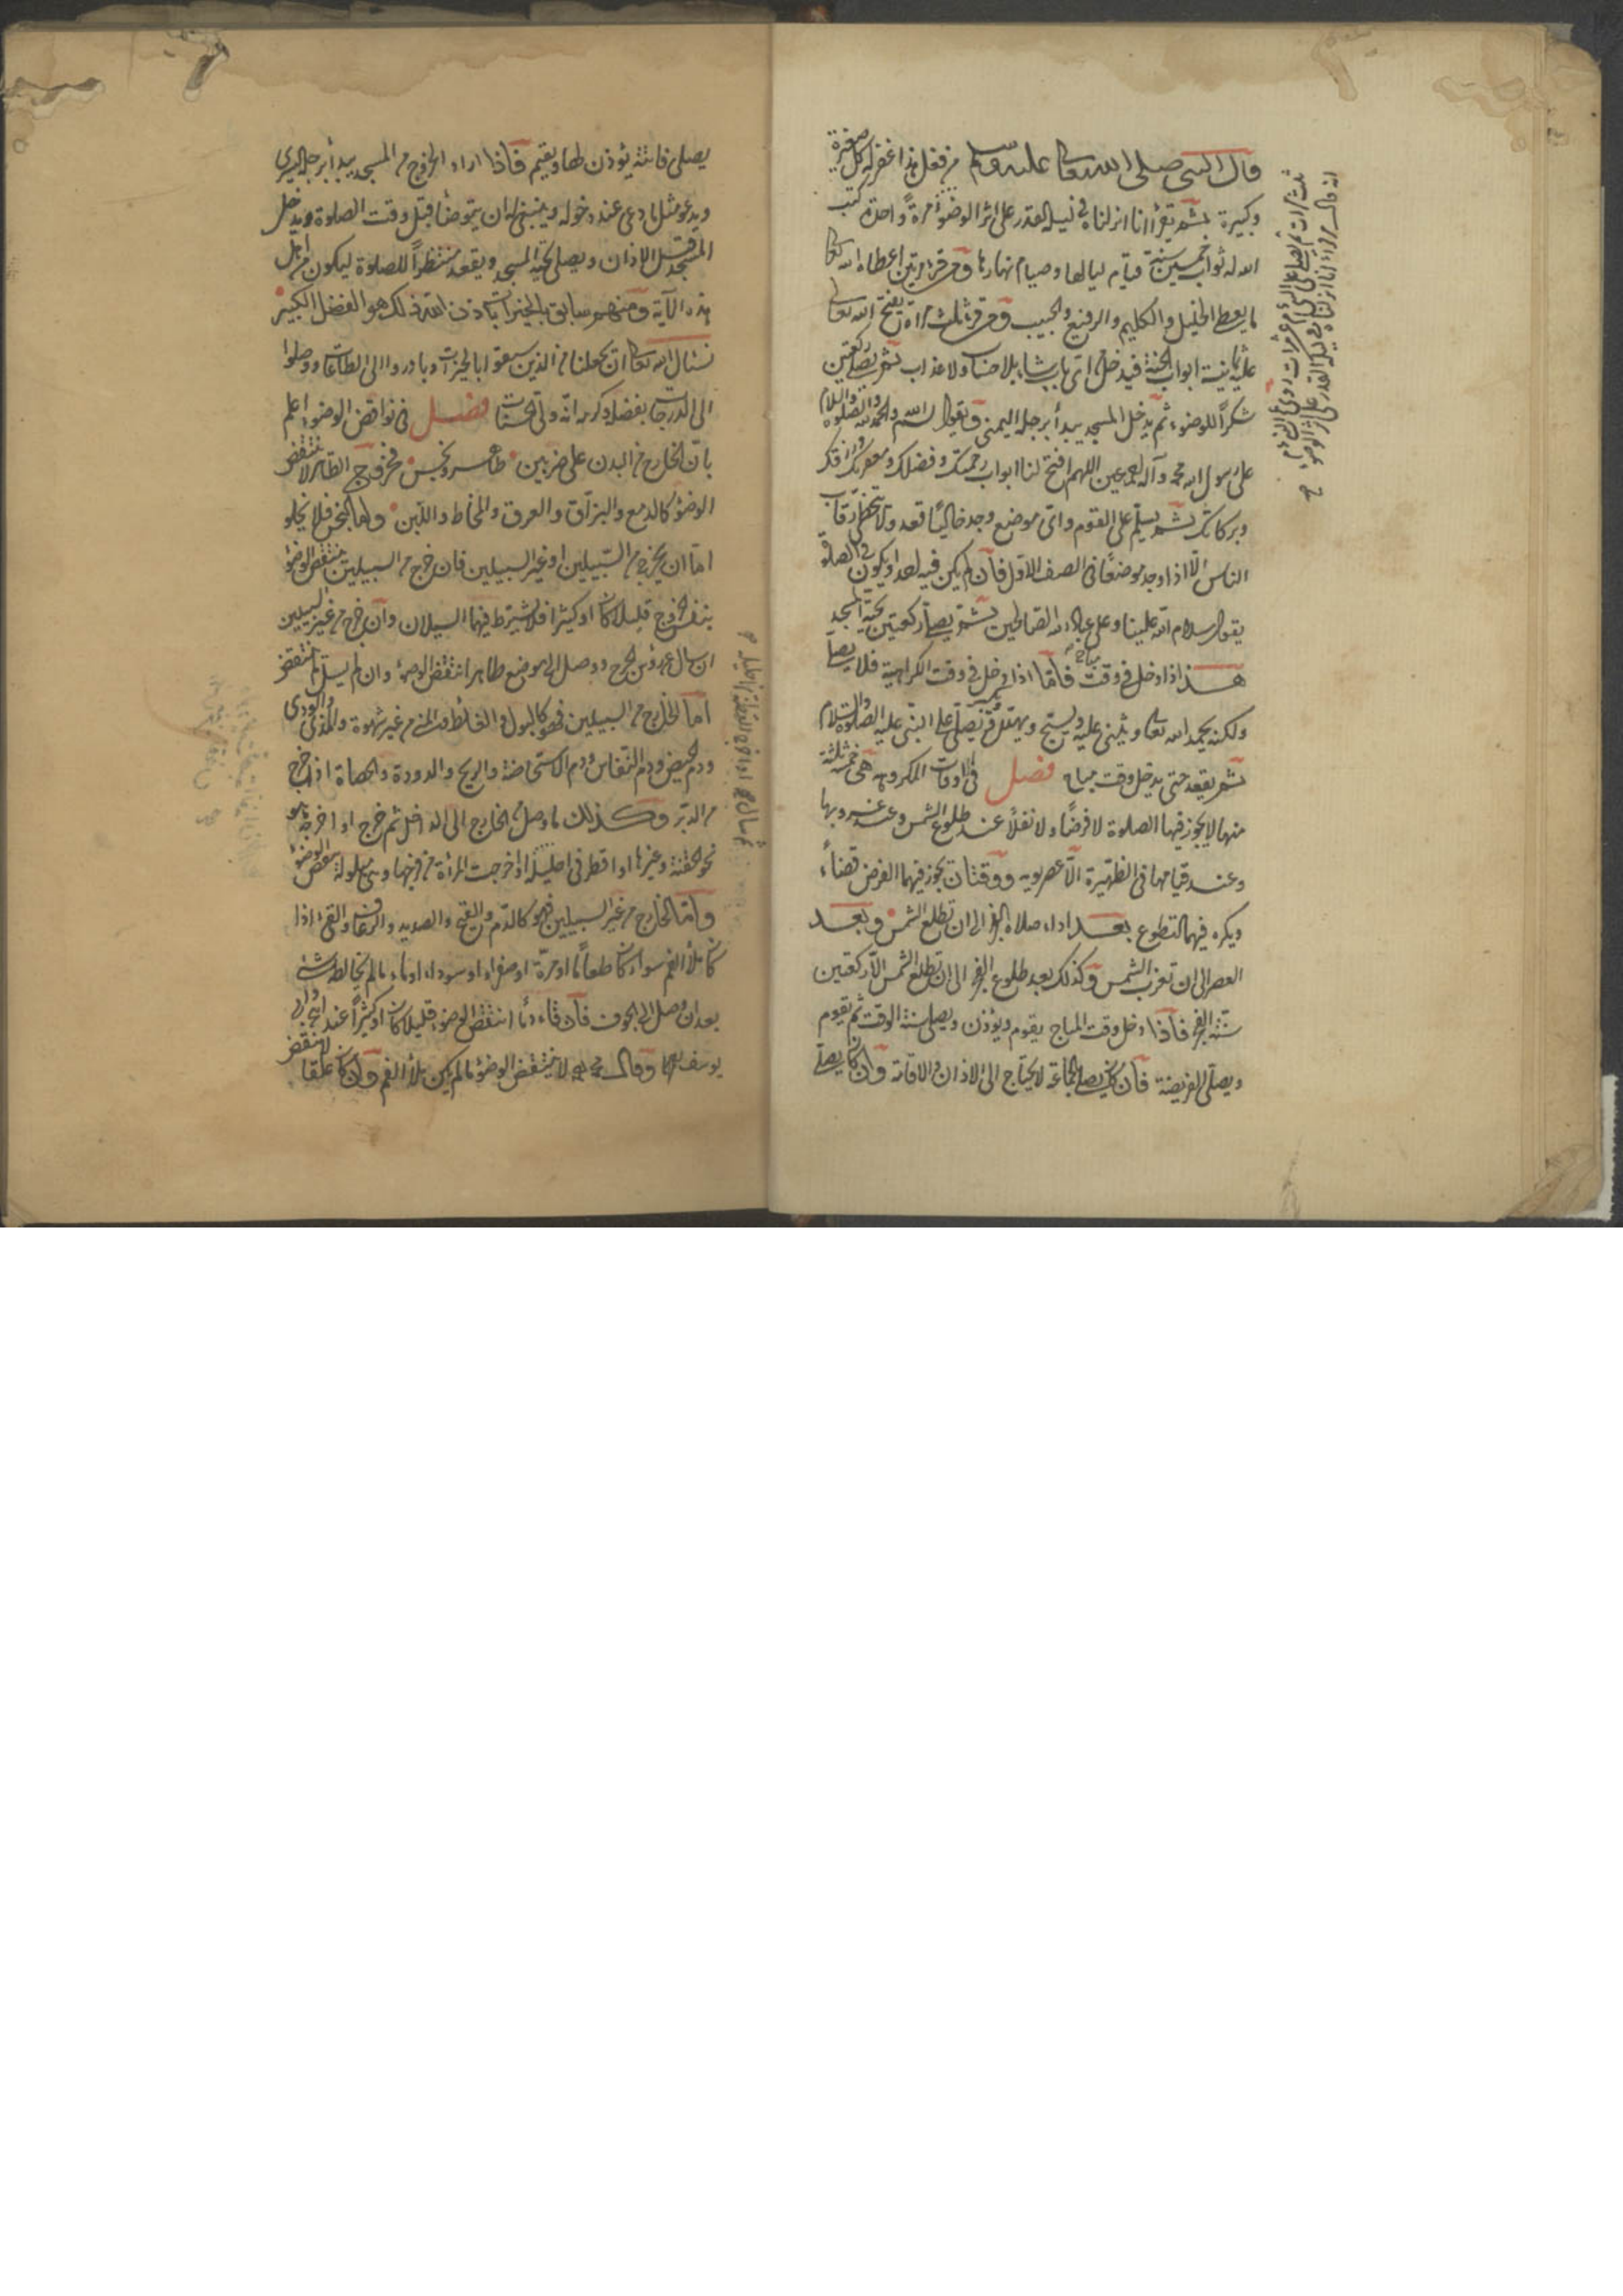 قال النبى صلى الله تعا عليه وسلم من فعل هذا غفر له كل صغيرة
وكبيرة ثم يقرأ انا انزلناه فى ليلة القدر على اثر الوضوء مرة واحدة كتب
الله له ثواب خمسين سنة قيام لياليها وصيام نهارها ومن قرأ مرتين اعطاه الله تعا
ما يعطى الخليل والكليم والرفيع والحبيب ومن قرأ ثلث مراة يفتح الله تعالى
عليه ثمانية ابواب الجنة فيدخل من اى باب شاء بلا حساب ولا عذاب ثم يصلى ركعتين
شكراً للوضوء ثم يدخل المسجد يبدأ برجله اليمنى ويقول بسم الله والحمد لله والصلوة والسلام
على رسول الله محمد وآله اجمعين اللهم افتح لنا ابواب رحمتك وفضلك ومغفرتك وارزقك
وبركاتك ثم يسلم على القوم واتى موضع وجد خالياً قعد ولا يتخطى رقاب
الناس الا اذا وجد موضعاً فى الصف الاول فان لم يكن فيه احد او يكون فى الصلوة
يقول سلام الله علينا وعلى عباد الله الصالحين ثم يصلى ركعتين تحية المسجد
هذا اذا دخل فى وقت مباح فاما اذا دخل فى وقت الكراهية فلا يصلى
ولكنه يحمد الله تعا ويثنى عليه ويسبح ويهلل ويصلى على النبى عليه الصلوة والسلام
ثم يقعد حتى يدخل وقت مباح فصل فى اوقات المكروهة هى خمسة ثلثة
منها لا يجوز فيها الصلوة لا فرضاً ولا نفلاً عند طلوع الشمس وعند غروبها
وعند قيامها فى الظهيرة الا عصر يومه ووقتان يجوز فيهما الفرض قضاءً
ويكره فيهما التطوع بعد اداء صلاة الفجر الى ان تطلع الشمس وبعد
العصر الى ان تغرب الشمس وكذلك بعد طلوع الفجر الى ان تطلع الشمس الا ركعتين
سنة الفجر فاذا دخل وقت المباح يقوم ويؤذن ويصلى سنة الوقت ثم يقوم
ويصلى الفريضة فان كان يصلى بالجماعة لا يحتاج الى الاذان والاقامة وان كان يصلى
يصلى فائتة يؤذن لها ويقيم فاذا اراد الخروج من المسجد يبدأ برجله اليسرى
ويدعو مثل ما دعى عند دخوله وينبغى له ان يتوضأ قبل وقت الصلوة ويدخل
المسجد قبل الاذان ويصلى تحية المسجد ويقعد منتظراً للصلوة ليكون من اهل
هذه الآية ومنهم سابق بالخيرات باذن الله ذلك هو الفضل الكبير
نسئال الله تعا ان يجعلنا من الذين سبقوا بالخيرات وبادروا الى الطاعات ووصلوا
الى الدرجات بفضله وكرمه انه ولى الحسنات فصل فى نواقض الوضوء اعلم
بان الخارج من البدن على ضربين طاهر ونجس فخروج الطاهر لا ينتقض
الوضوء كالدمع والبزاق والعرق والمخاط واللبن واما النجس فلا يخلو
اما ان يخرج من السبيلين او غير السبيلين فان خرج من السبيلين ينتقض الوضوء
بنفس الخروج قليلا كان او كثيرا فلا يشترط فيهما السيلان وان خرج من غير السبيلين
ان سال عن رؤس الجرح ووصل الى موضع طاهر انتقض الوضوء وان لم يسل لم ينتقض
اما الخارج من السبيلين فهو كالبول والغائط والمنى من غير شهوة والمذى والودى
ودم الحيض ودم النفاس ودم الاستحاضة والريح والدودة والحصاة اذا خرج
من الدبر وكذلك ما وصل من الخارج الى الداخل ثم خرج او اخرجه هو
نحو الحقنة وغيرها او اقطر فى احليله او اخرجت المرأة من فرجها وهى مبلولة ينقض الوضوء
واما الخارج من غير السبيلين فهو كالدم والقيح والصديد والرعاف والقئ اذا
كان ملأ الفم سواء كان طعاماً او مرة او صفراء او سوداء او ماء ما لم يخالطه شئ
بعد ان وصل الى الجوف فان قاء دماً انتقض الوضوء قليلا كان او كثيراً عند ابى
يوسف وقال محمد لا ينتقض الوضوء ما لم يكن ملأ الفم وان كان علقاً لا ينتقض